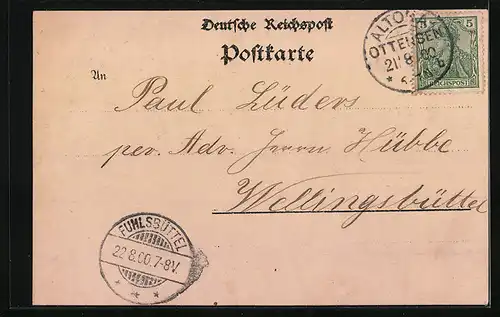 Deutsche Reichspost
Postkarte
An
Paul Lüders
per. Adr. Herrn Hübbe
Wellingsbüttel
ALTONA
OTTENSEN
21 8 00
5
REICHSPOST
FUHLSBÜTTEL
22.8.00.7-8V.